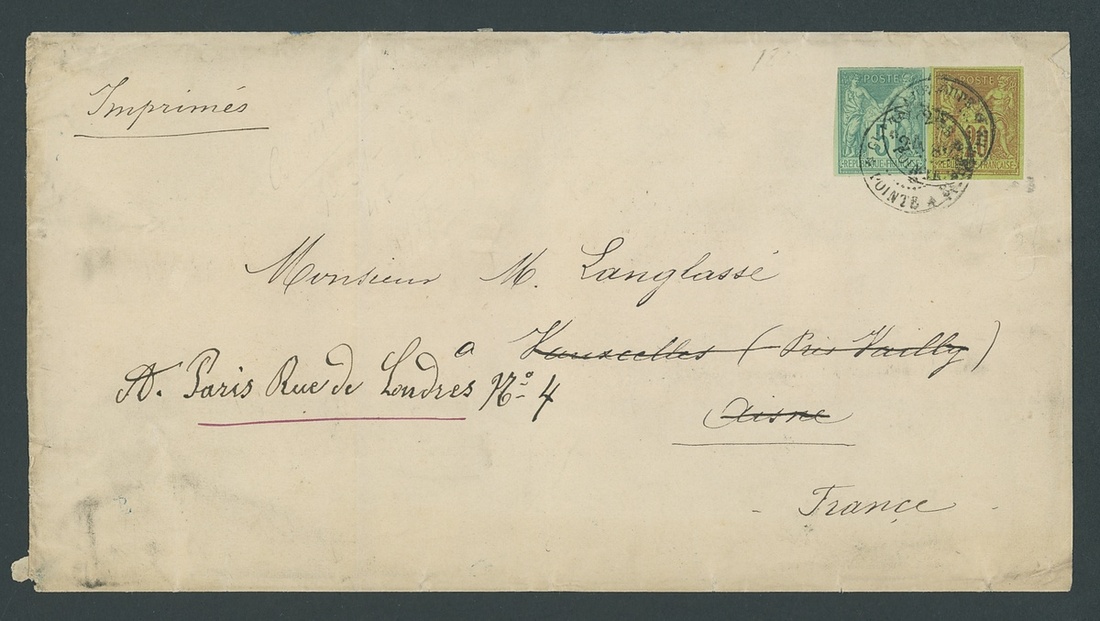 Imprimés
POSTE
5
REPUBLIQUE FRANÇAISE
POSTE
20
REPUBLIQUE FRANÇAISE
POINTE
Monsieur M. Langlassé
a Vauxcelles (Près Vailly)
A. Paris Rue de Londres No 4
Aisne
France